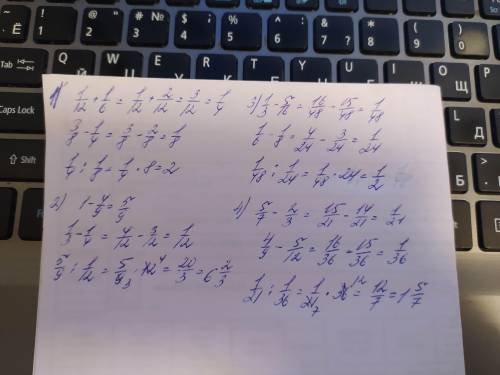 1) 1/12 + 1/6 = 1/12 + 2/12 = 3/12 = 1/4
3/8 - 1/4 = 3/8 - 2/8 = 1/8
1/4 : 1/8 = 1/4 · 8 = 2
2) 1 - 4/9 = 5/9
1/3 - 1/4 = 4/12 - 3/12 = 1/12
5/9 : 1/12 = 5/9 3 · 12 4 = 20/3 = 6 2/3
3) 1/3 - 5/16 = 16/48 - 15/48 = 1/48
1/6 - 1/8 = 4/24 - 3/24 = 1/24
1/48 : 1/24 = 1/48 · 24 = 1/2
4) 5/7 - 2/3 = 15/21 - 14/21 = 1/21
4/9 - 5/12 = 16/36 - 15/36 = 1/36
1/21 : 1/36 = 1/21 7 · 36 12 = 12/7 = 1 5/7
Tab
Shift